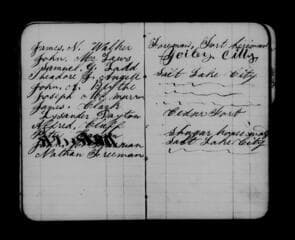 James. N. Walker
John. Mc Laws
Samuel. G. Ladd
Theodore J. Angell
John. A. Blythe
Joseph. McMurrin
James. Clark
Lysander Dayton
Aldred. Cluff
Nathan Freeman
Freeman, Fort
City
Salt Lake City
Cedar Fort
Shugar house
Salt Lake City